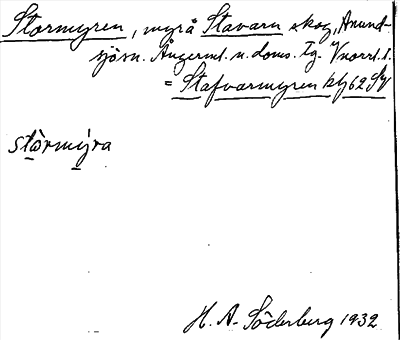 Stormyren, myr å Stavarn skog, Anund-
sjö sn. Ångerml. n. doms. Tg. Vnorrl. l.
= Stafvarmyren kbl 62 SV
stòrmýra
H. A. Söderberg 1932